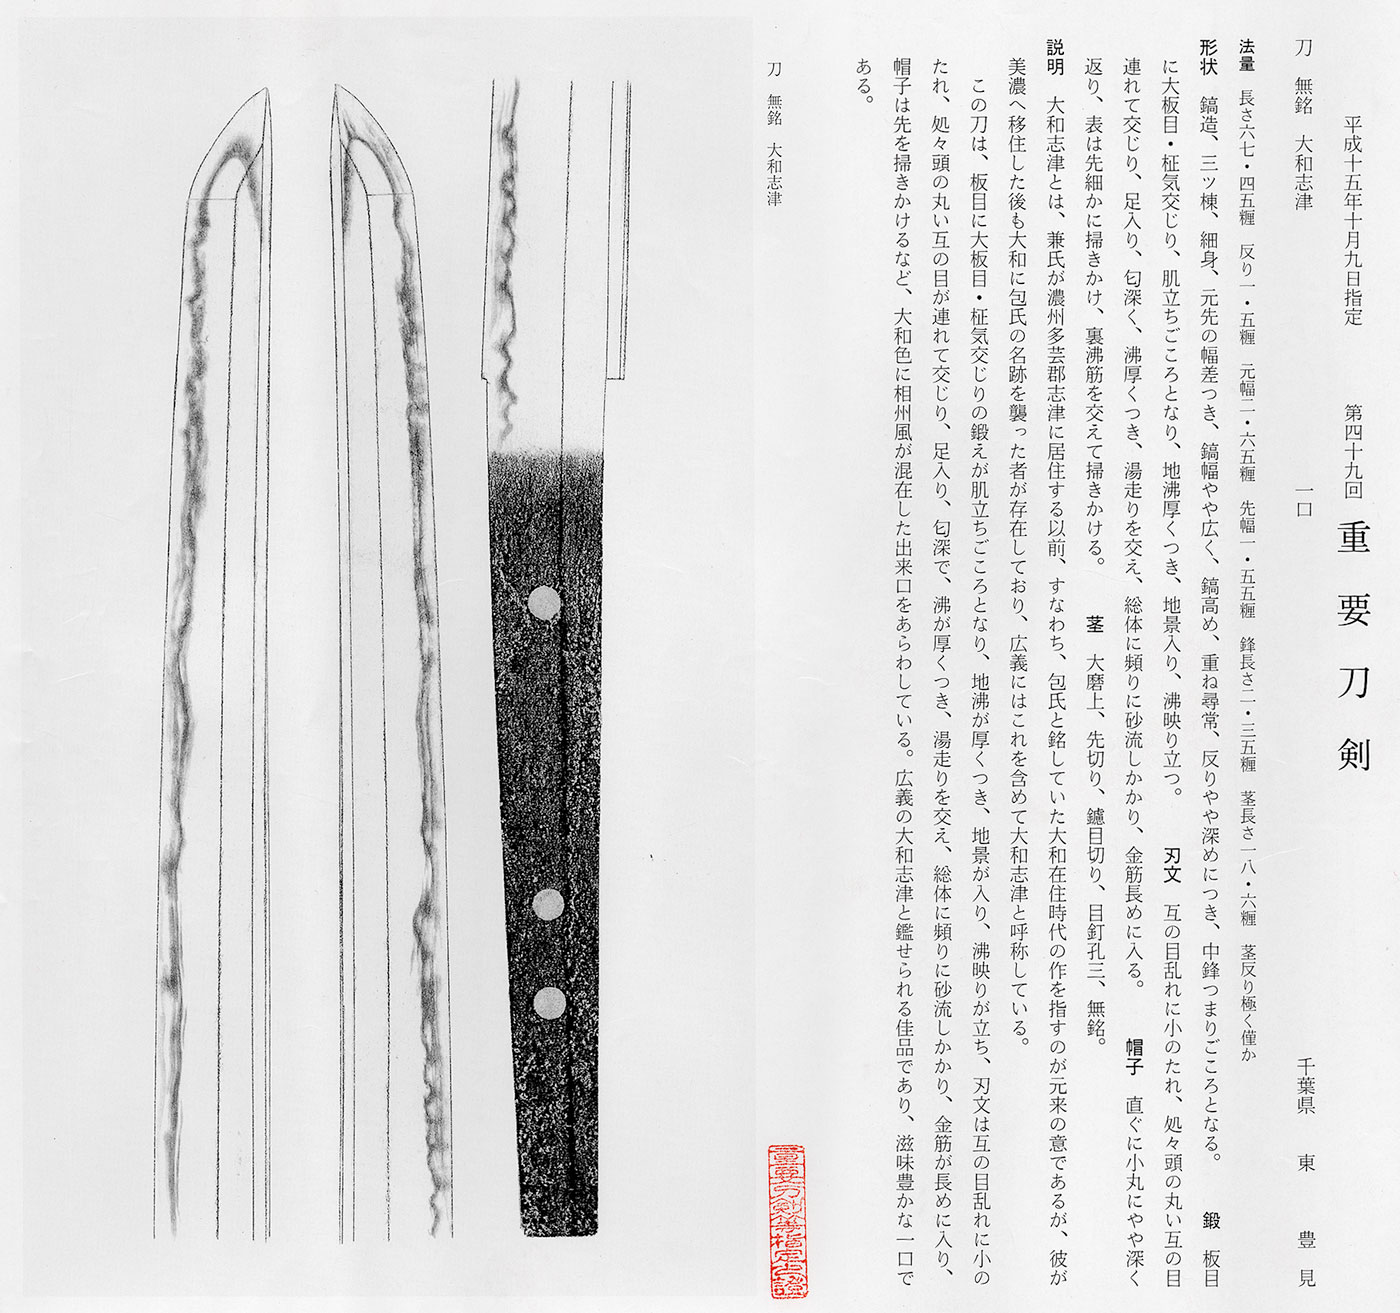 平成十五年十月九日指定　第四十九回　重要刀剣
刀　無銘　大和志津　一口　千葉県　東　豊見
法量　長さ六七・四五糎　反り一・五糎　元幅二・六五糎　先幅一・五五糎　鋒長さ二・三五糎　茎長さ一八・六糎　茎反り極く僅か
形状　鎬造、三ッ棟、細身、元先の幅差つき、鎬幅やや広く、鎬高め、重ね尋常、反りやや深めにつき、中鋒つまりごころとなる。　鍛　板目
に大板目・柾気交じり、肌立ちごころとなり、地沸厚くつき、地景入り、沸映り立つ。　刃文　互の目乱れに小のたれ、処々頭の丸い互の目
連れて交じり、足入り、匂深く、沸厚くつき、湯走りを交え、総体に頻りに砂流しかかり、金筋長めに入る。　帽子　直ぐに小丸にやや深く
返り、表は先細かに掃きかけ、裏沸筋を交えて掃きかける。　茎　大磨上、先切り、鑢目切り、目釘孔三、無銘。
説明　大和志津とは、兼氏が濃州多芸郡志津に居住する以前、すなわち、包氏と銘していた大和在住時代の作を指すのが元来の意であるが、彼が
美濃へ移住した後も大和に包氏の名跡を襲った者が存在しており、広義にはこれを含めて大和志津と呼称している。
この刀は、板目に大板目・柾気交じりの鍛えが肌立ちごころとなり、地沸が厚くつき、地景が入り、沸映りが立ち、刃文は互の目乱れに小の
たれ、処々頭の丸い互の目が連れて交じり、足入り、匂深で、沸が厚くつき、湯走りを交え、総体に頻りに砂流しかかり、金筋が長めに入り、
帽子は先を掃きかけるなど、大和色に相州風が混在した出来口をあらわしている。広義の大和志津と鑑せられる佳品であり、滋味豊かな一口で
ある。
刀　無銘　大和志津
重要刀剣等指定之證